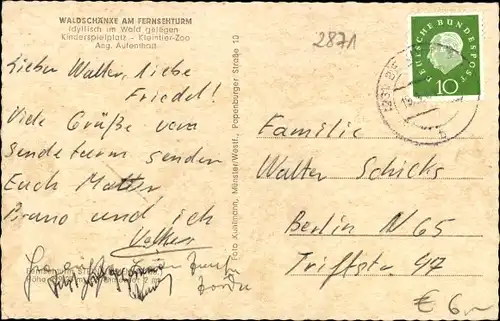 WALDSCHÄNKE AM FERNSEHTURM
Idyllisch im Wald gelegen
Kinderspielplatz - Kleintier-Zoo
Ang. Aufenthalt
2871
DEUTSCHE BUNDESPOST
10
Lieber Walter, liebe
Friedel!
Viele Grüße vom
Sendeturm senden
Euch Mutter
Bruno und ich
Volker
Foto Kuhlmann, Münster/Westf., Papenburger Straße 10
Familie
Walter Schicks
Berlin N 65
Triftstr. 47
€ 6,-